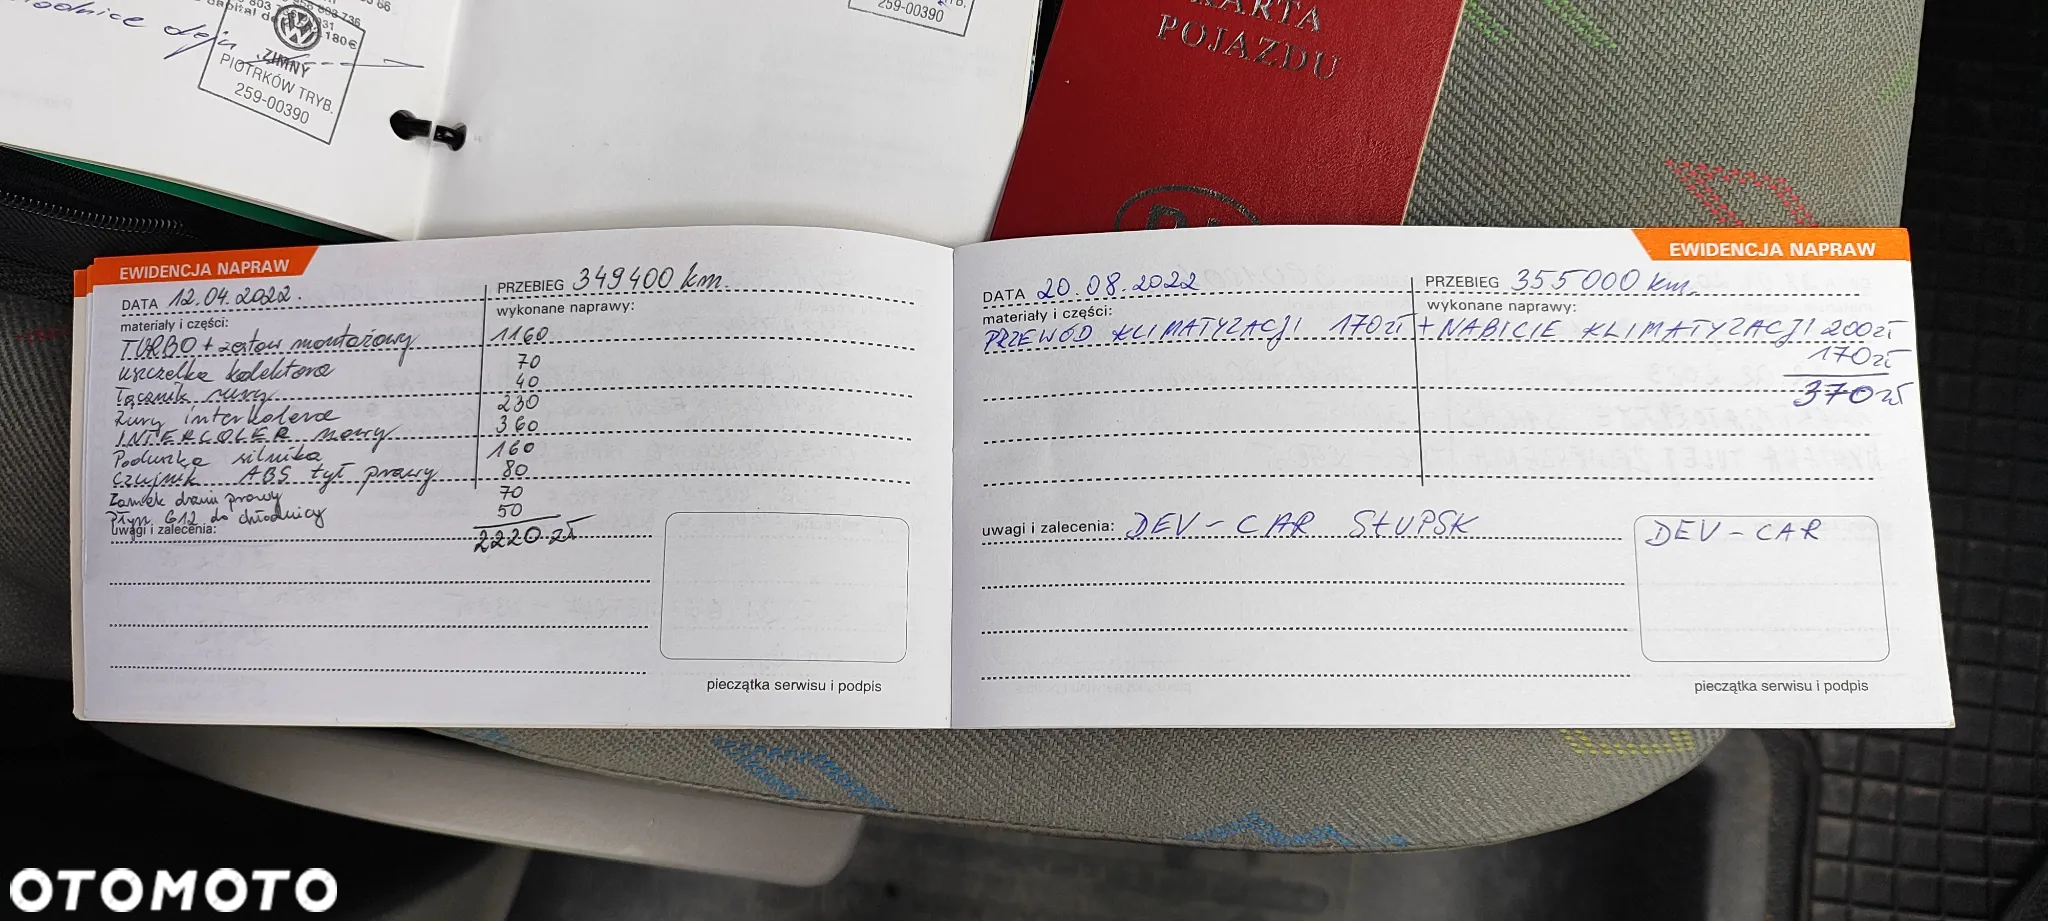 180€
ZIMNY
PIOTRKÓW TRYB.
259-00390
259-00390
KARTA
POJAZDU
EWIDENCJA NAPRAW
DATA 12.04.2022. PRZEBIEG 349400 km.
materiały i części: wykonane naprawy:
TURBO + zestaw montażowy 1160
uszczelka kolektora 70
Łącznik rury 40
Rury interkolera 230
INTERCOLER nowy 360
Poduszka silnika 160
Czujnik ABS tył prawy 80
Zamek drzwi prawy 70
Płyn G12 do chłodnicy 50
uwagi i zalecenia: 2220 zł
pieczątka serwisu i podpis
EWIDENCJA NAPRAW
DATA 20.08.2022 PRZEBIEG 355000 km.
materiały i części: wykonane naprawy:
PRZEWÓD KLIMATYZACJI 170zł + NABICIE KLIMATYZACJI 200zł
170zł
370zł
uwagi i zalecenia: DEV-CAR SŁUPSK
DEV-CAR
pieczątka serwisu i podpis
OTOMOTO